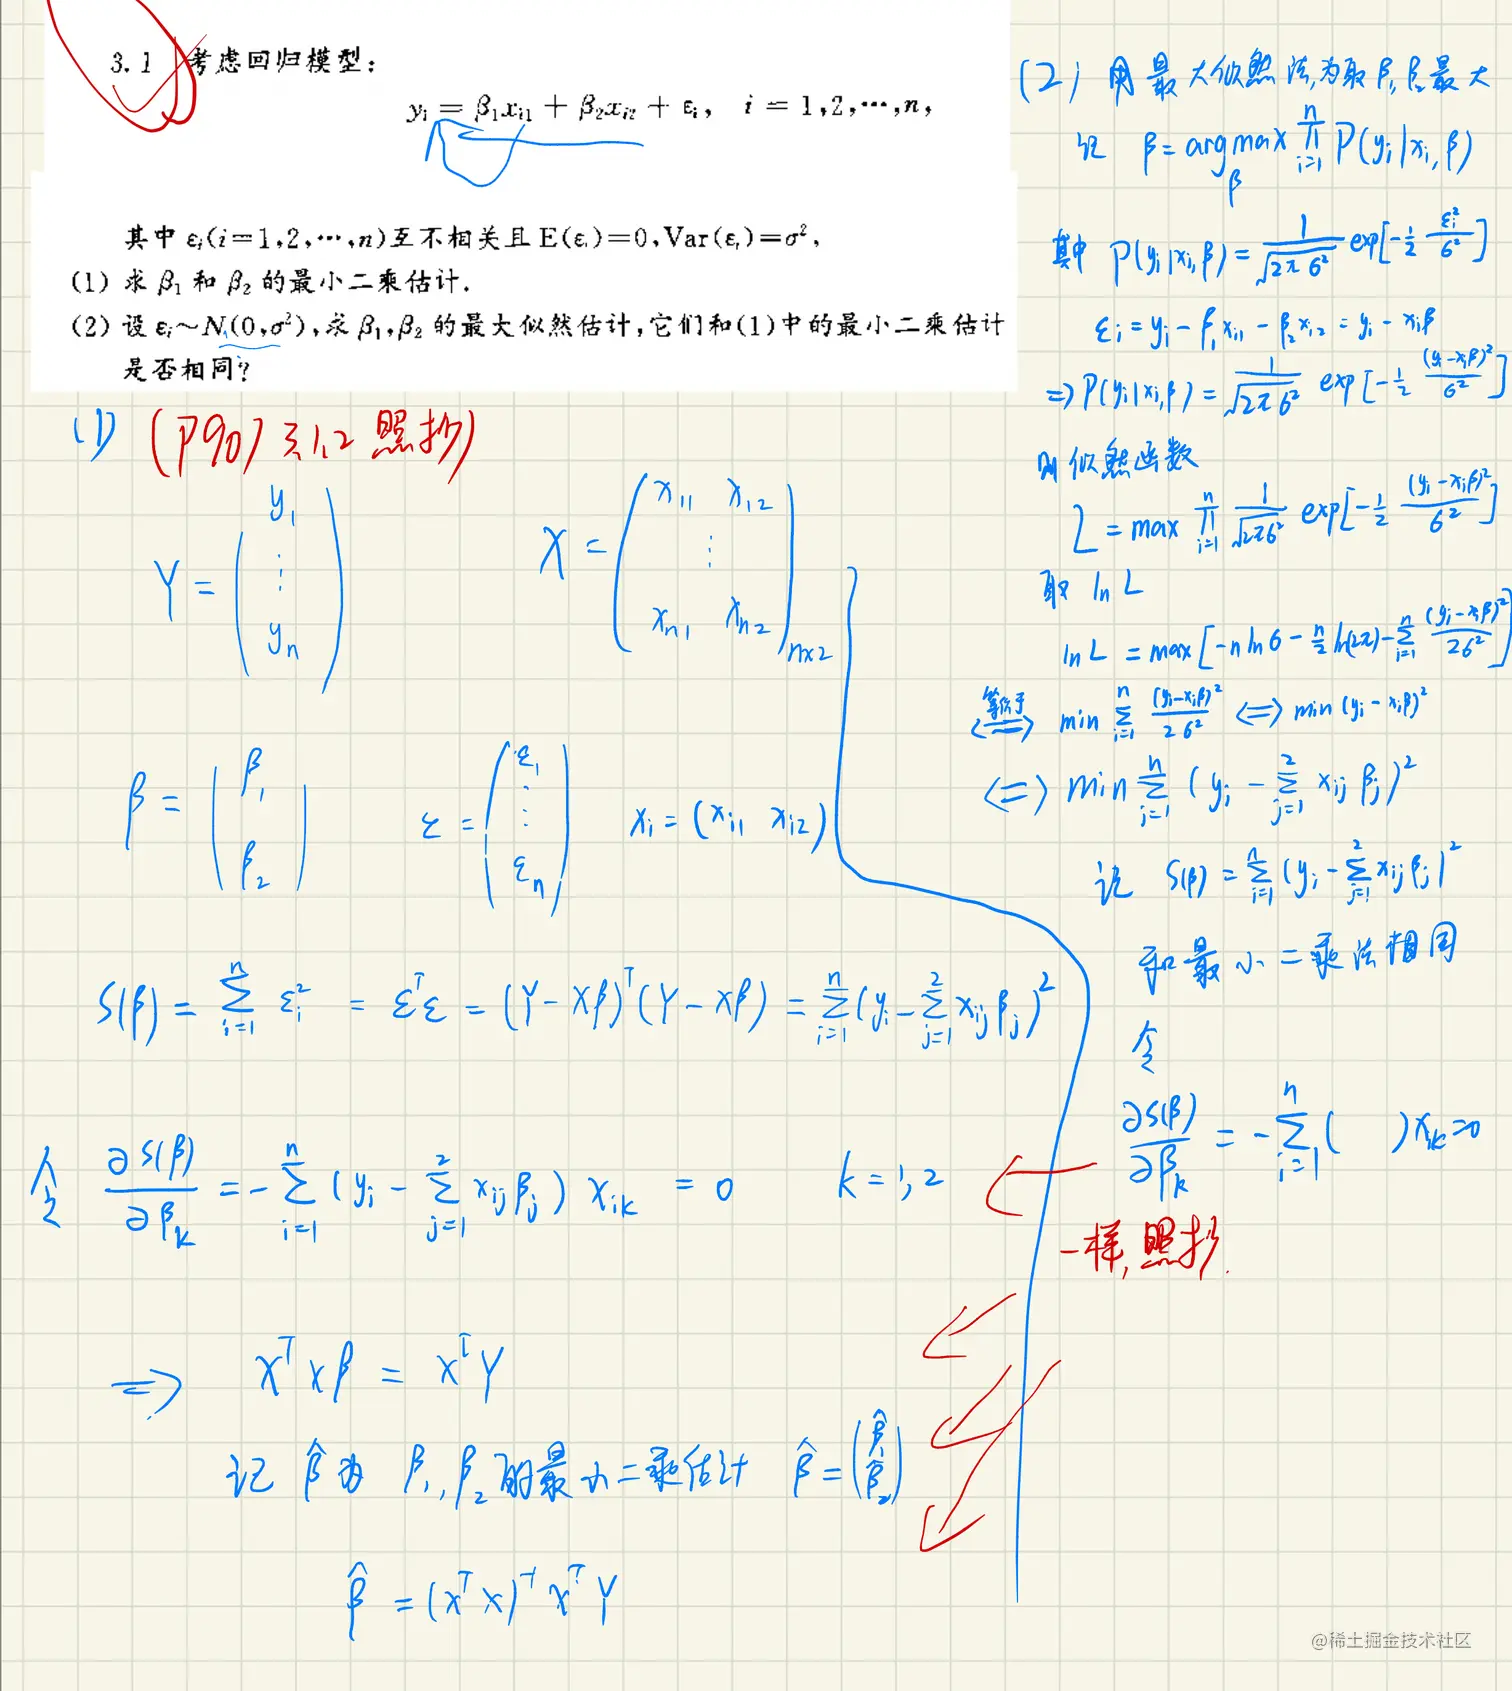 3.1 考虑回归模型:
yᵢ = β₁xᵢ₁ + β₂xᵢ₂ + εᵢ, i = 1,2,⋯,n,
其中 εᵢ(i=1,2,⋯,n)互不相关且 E(εᵢ)=0,Var(εᵢ)=σ²,
(1) 求 β₁ 和 β₂ 的最小二乘估计.
(2) 设 εᵢ~N(0,σ²),求 β₁,β₂ 的最大似然估计,它们和(1)中的最小二乘估计
是否相同?
(1) (P90) 3.1.2 照抄)
Y = (y₁ ⋮ yₙ) X = (x₁₁ x₁₂ ⋮ xₙ₁ xₙ₂)ₙₓ₂
β = (β₁ β₂) ε = (ε₁ ⋮ εₙ) xᵢ = (xᵢ₁ xᵢ₂)
S(β) = Σᵢ₌₁ⁿ εᵢ² = εᵀε = (Y-Xβ)ᵀ(Y-Xβ) = Σᵢ₌₁ⁿ(yᵢ-Σⱼ₌₁²xᵢⱼβⱼ)²
令 ∂S(β)/∂βₖ = -Σᵢ₌₁ⁿ(yᵢ-Σⱼ₌₁²xᵢⱼβⱼ)xᵢₖ = 0 k=1,2
⇒ XᵀXβ = XᵀY
记 β̂为 β₁,β₂的最小二乘估计 β̂=(β̂₁ β̂₂)
β̂ = (XᵀX)⁻¹XᵀY
(2) 用最大似然法,为取β₁,β₂最大
记 β = argmax_β Πᵢ₌₁ⁿ P(yᵢ|xᵢ,β)
其中 P(yᵢ|xᵢ,β) = 1/√(2πσ²) exp[-1/2 εᵢ²/σ²]
εᵢ = yᵢ-β₁xᵢ₁-β₂xᵢ₂ = yᵢ-xᵢβ
⇒ P(yᵢ|xᵢ,β) = 1/√(2πσ²) exp[-1/2 (yᵢ-xᵢβ)²/σ²]
则似然函数
L = max Πᵢ₌₁ⁿ 1/√(2πσ²) exp[-1/2 (yᵢ-xᵢβ)²/σ²]
取 ln L
ln L = max[-n ln σ - n/2 ln(2π) - Σᵢ₌₁ⁿ (yᵢ-xᵢβ)²/2σ²]
⇔ 等价于 min Σᵢ₌₁ⁿ (yᵢ-xᵢβ)²/2σ² ⇔ min (yᵢ-xᵢβ)²
⇔ min Σᵢ₌₁ⁿ (yᵢ-Σⱼ₌₁² xᵢⱼβⱼ)²
记 S(β) = Σᵢ₌₁ⁿ(yᵢ-Σⱼ₌₁²xᵢⱼβⱼ)²
和最小二乘法相同
令
∂S(β)/∂βₖ = -Σᵢ₌₁ⁿ( )xᵢₖ=0
一样,照抄.
@稀土掘金技术社区